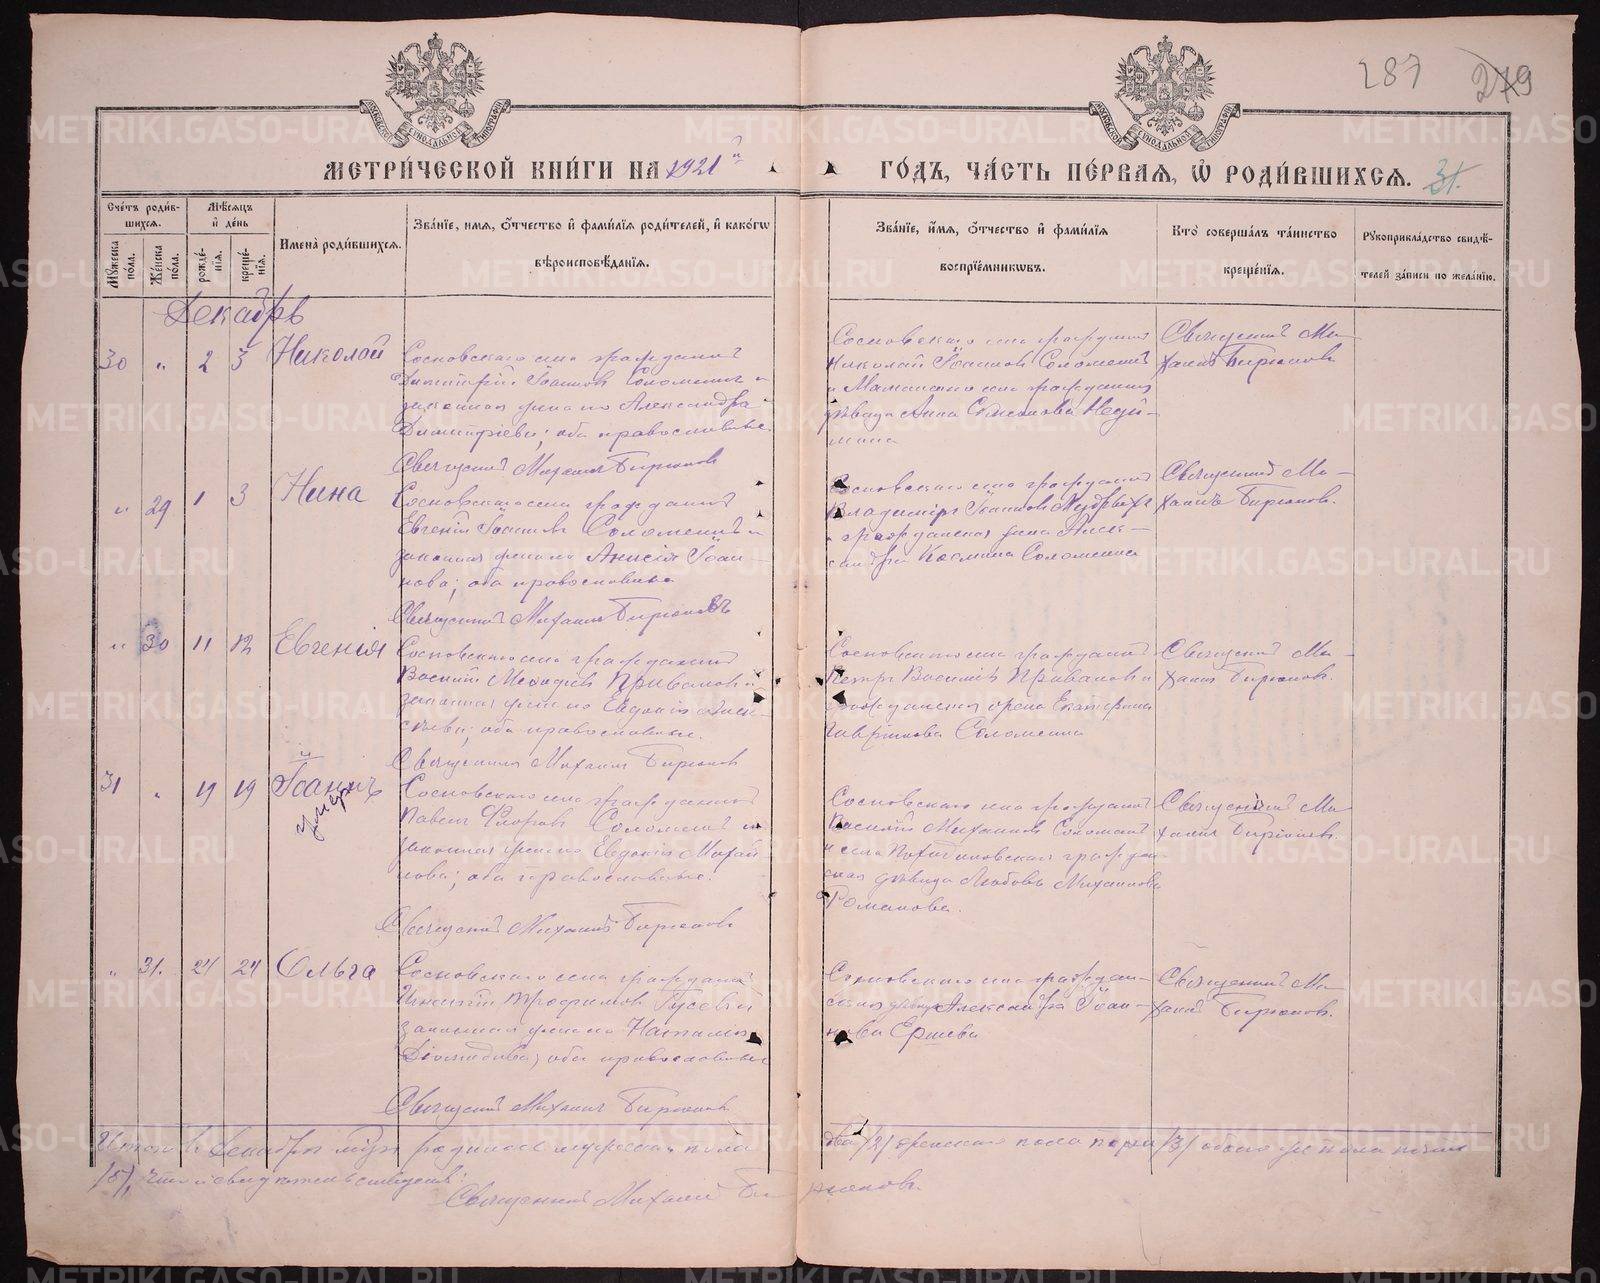 287 279
МЕТРИ́ЧЕСКОЙ КНИ́ГИ НА 1921 й ГО́ДЪ, ЧА́СТЬ ПЕ́РВАЯ, Ѡ РОДИ́ВШИХСЯ. 31.
Сче́тъ роди́в-
шихся.
Мѣсяцъ
и́ де́нь
Мꙋ́жеска
по́ла.
Же́нска
по́ла.
рожде́-
нїя.
креще́-
нїя.
Имена̀ роди́вшихся.
Зва́нїе, имя, ѻ҆́тчество и҆ фами́лїя роди́телей, и҆ како́гѡ
вѣроисповѣ́данїя.
Зва́нїе, и҆́мя, ѻ҆́тчество и҆ фами́лїя
воспрїе́мникѡвъ.
Кто̀ соверша́лъ та́инство
креще́нїя.
Рꙋкоприкла́дство свидѣ́-
телей за́писи по жела́нїю.
Декабрь
30 " 2 3 Николай
Сосновскаго села гражданинъ
Димитрій Іоанновъ Соломеинъ и
законная жена его Александра
Димитріева; оба православные
Священникъ Михаилъ Бирюковъ
Сосновскаго села гражданинъ
Николай Іоанновъ Соломеинъ
и Маминскаго села гражданка
дѣвица Анна
Священникъ Ми-
хаилъ Бирюковъ
" 29 1 3 Нина
Сосновскаго села гражданинъ
Евгеній Іоанновъ Соломеинъ и
законная жена его Анисія Іоан-
нова; оба православные
Священникъ Михаилъ Бирюковъ
Сосновскаго села гражданинъ
Владиміръ Іоанновъ Мудрыхъ
и гражданская жена Алек-
сандра Космина Соломеина
Священникъ Ми-
хаилъ Бирюковъ.
" 30 11 12 Евгенія
Сосновскаго села гражданинъ
Василій Меѳодіевъ Приваловъ и
законная жена его Евдокія Алек-
сѣева; оба православные.
Священникъ Михаилъ Бирюковъ
Сосновскаго села гражданинъ
Петръ Василіевъ Приваловъ и
гражданская жена Екатерина
Гавріилова Соломеина
Священникъ Ми-
хаилъ Бирюковъ.
31 " 19 19 Іоаннъ
умеръ
Сосновскаго села гражданинъ
Павелъ Флоровъ Соломеинъ и
законная жена его Евдокія Михаи-
лова; оба православные.
Священникъ Михаилъ Бирюковъ
Сосновскаго села гражданинъ
Василій Михаиловъ Соломеинъ
и села граждан-
ская дѣвица Любовь Михаилова
Романова.
Священникъ Ми-
хаилъ Бирюковъ.
" 31. 24 24 Ольга
Сосновскаго села гражданинъ
Игнатій Трофимовъ Гусевъ и
законная жена его Наталія
Діомидова; оба православные
Священникъ Михаилъ Бирюковъ
Сосновскаго села граждан-
ская дѣвица Александра Іоан-
нова Ершева
Священникъ Ми-
хаилъ Бирюковъ.
Итого въ Декабрѣ родилось мужеска пола два /2/ женскаго пола /3/ обоего же пола пять
/5/,
Священникъ Михаилъ Бирюковъ.
METRIKI.GASO-URAL.RU